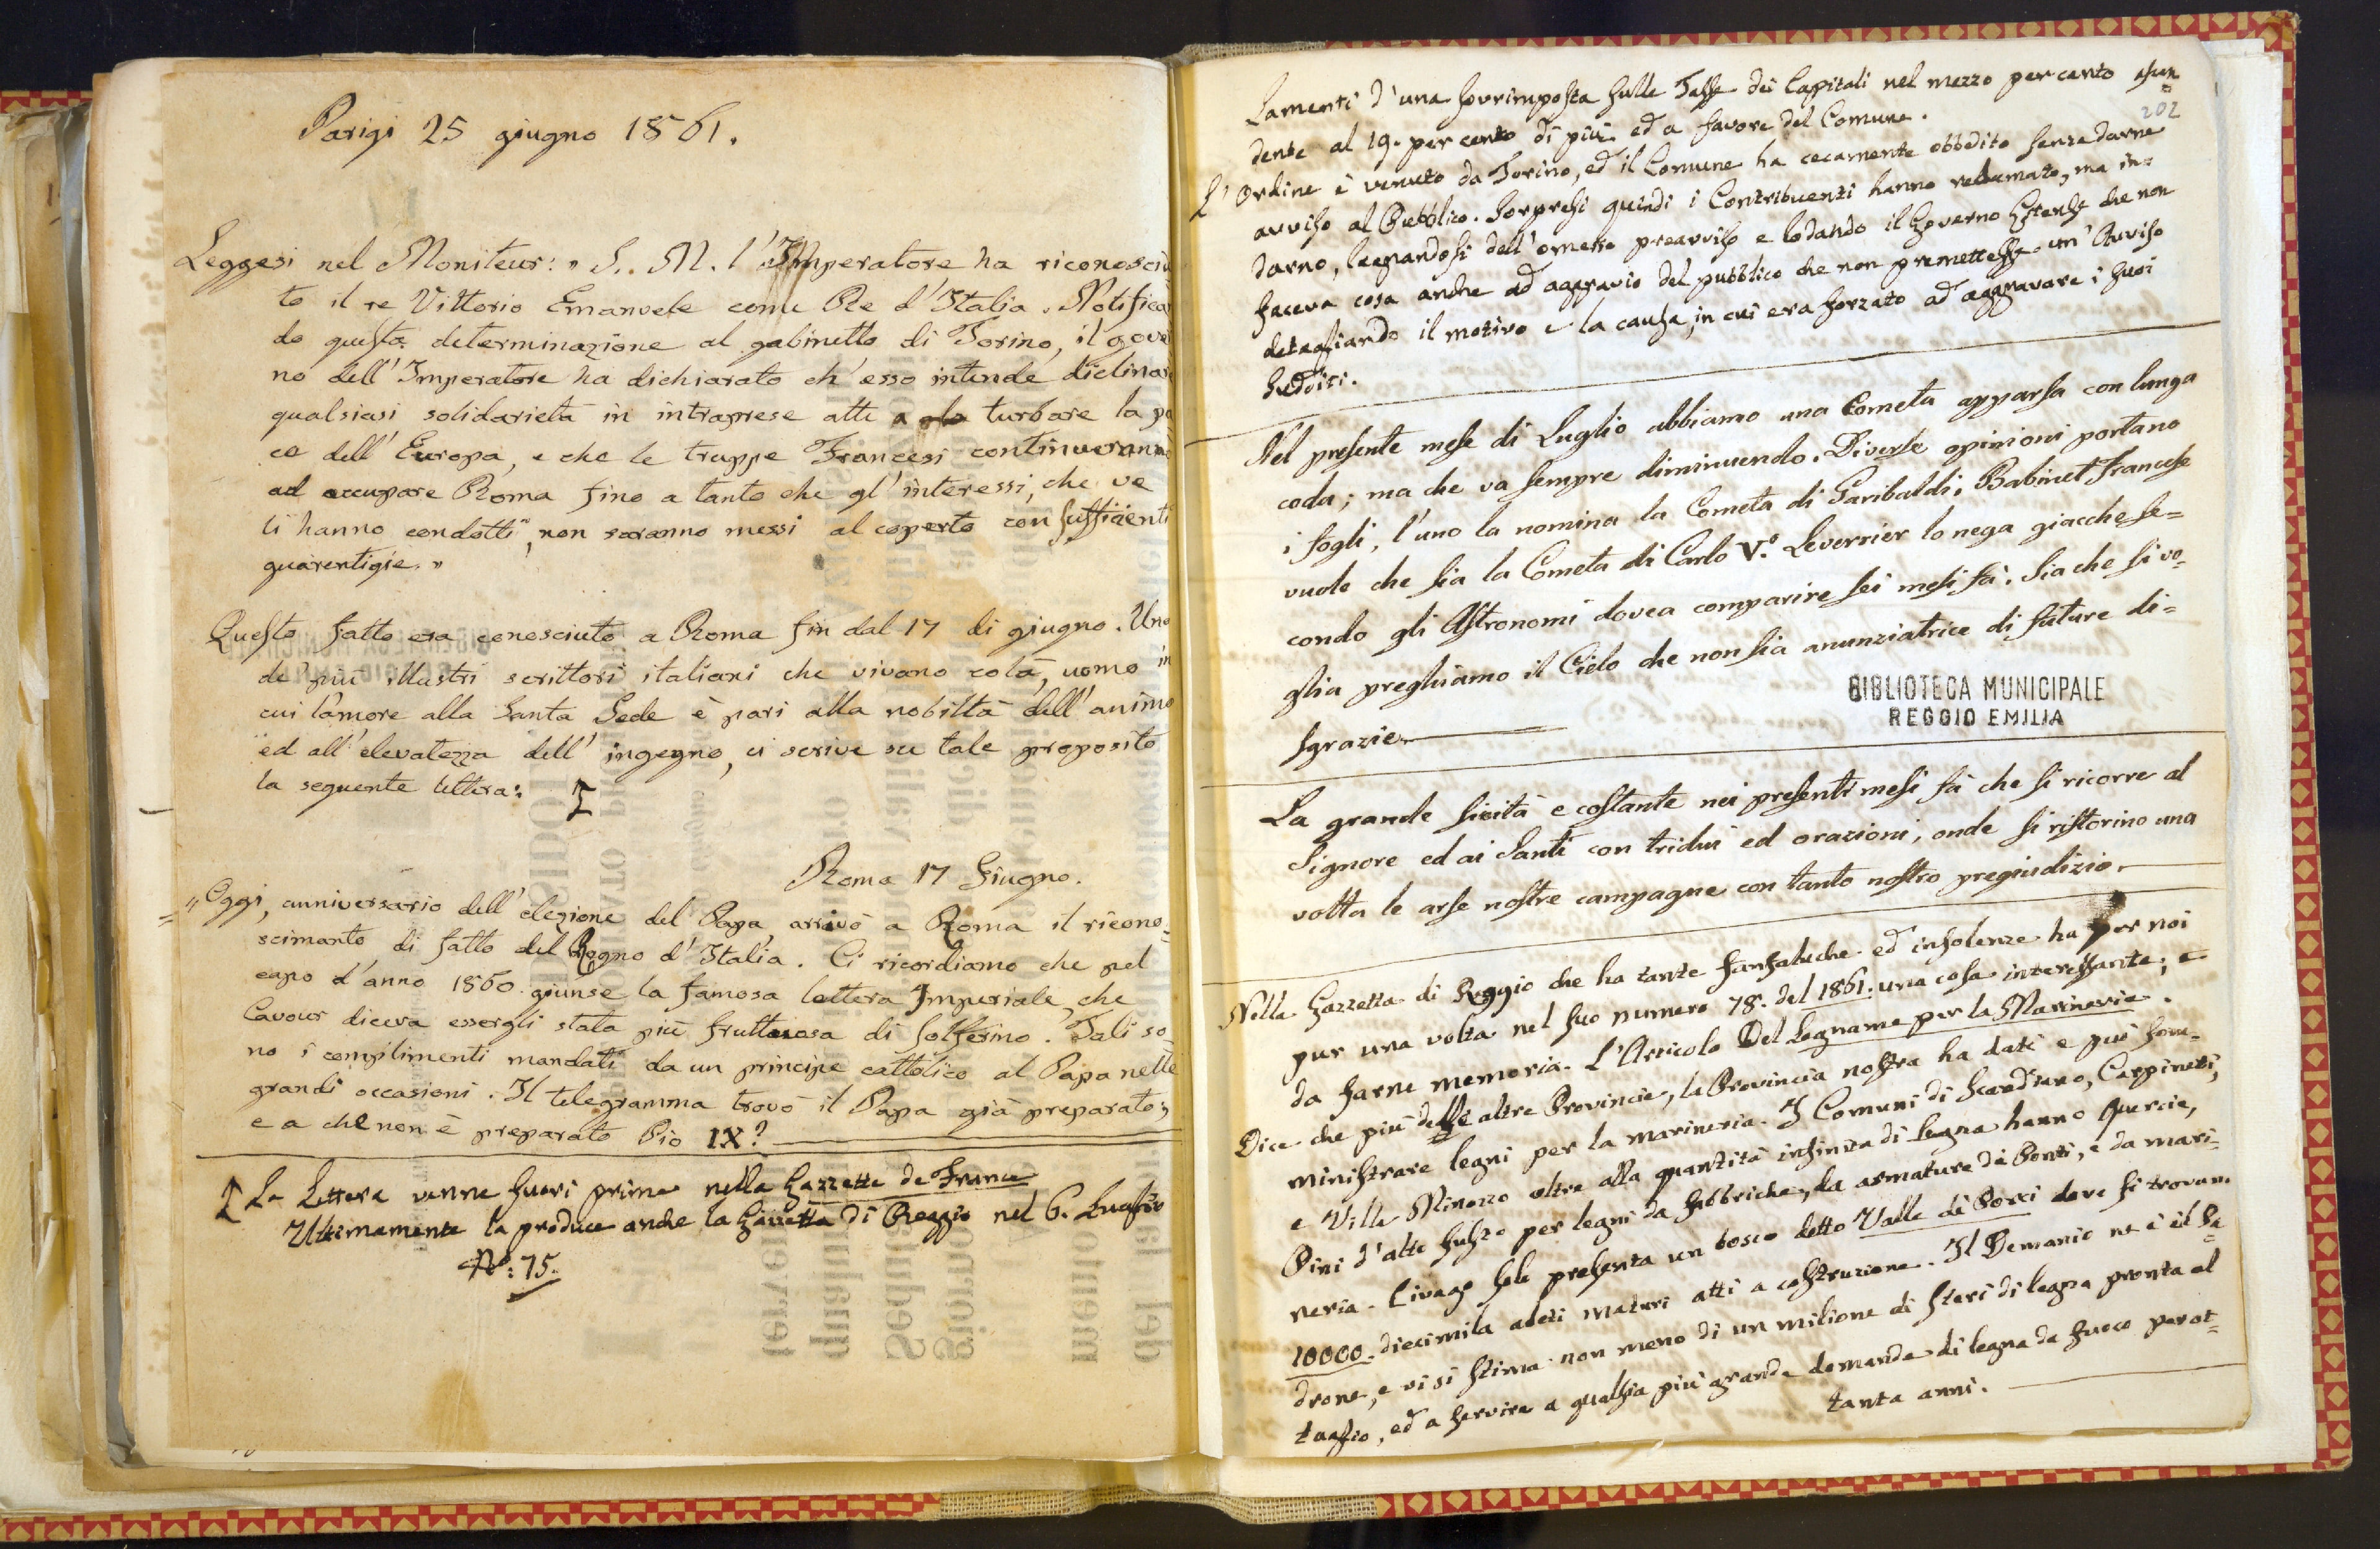 Parigi 25 giugno 1861.
Leggesi nel Moniteur: „ S. M. l'Imperatore ha riconosciu
to il re Vittorio Emanuele come Re d'Italia. Notifica
do questa determinazione al gabinetto di Torino, il gove
no dell'Imperatore ha dichiarato ch'esso intende diclinar
qualsiasi solidarietà in intraprese atte a turbare la pa
ce dell'Europa, e che le truppe Francesi continueranno
ad occupare Roma fino a tanto che gl'interessi, che ve
li hanno condotti, non saranno messi al coperto con sufficienti
guarentigie. „
Questo fatto era conosciuto a Roma fin dal 17 di giugno. Uno
de' più illustri scrittori italiani che vivano colà, uomo in
cui l'amore alla Santa Sede è pari alla nobiltà dell'animo
ed all'elevatezza dell'ingegno, ci scrive su tale proposito
la seguente lettera:
Roma 17 Giugno.
„ Oggi, anniversario dell'elezione del Papa, arrivò a Roma il ricono=
scimento di fatto del Regno d'Italia. Ci ricordiamo che pel
capo d'anno 1860 giunse la famosa lettera Imperiale, che
Cavour diceva essergli stata più fruttuosa di Solferino. Tali so=
no i complimenti mandati da un principe cattolico al Papa nelle
grandi occasioni. Il telegramma trovò il Papa già preparato;
e a che non è preparato Pio IX?
La Lettera venne fuori prima nella Gazzette de France
Ultimamente la produce anche la Gazzetta di Reggio nel 6. Luglio
N°: 75.
202
Lamenti d'una sovrimposta sulle Tasse dei Capitali nel mezzo per cento
dente al 19. per cento di più ed a favore del Comune.
L'Ordine è venuto da Torino, ed il Comune ha cecamente obbedito senza darne
avviso al Pubblico. Sorpresi quindi i Contribuenti hanno reclamato, ma in=
darno, lagnandosi dell'omesso preavviso e lodando il Governo Estense che non
faceva cosa anche ad aggravio del pubblico che non premettesse un'Avviso
detagliando il motivo e la causa, in cui era forzato ad aggravare i suoi
sudditi.
Nel presente mese di Luglio abbiamo una Cometa apparsa con lunga
coda; ma che va sempre diminuendo. Diverse opinioni portano
i fogli, l'uno la nomina la Cometa di Garibaldi. Babinet Francese
vuole che sia la Cometa di Carlo V.° Leverrier lo nega giacchè se=
condo gli Astronomi dovea comparire sei mesi fà. Sia che si vo=
glia preghiamo il Cielo che non sia anunziatrice di future di=
sgrazie.
BIBLIOTECA MUNICIPALE
REGGIO EMILIA
La grande sicità e costante nei presenti mesi fà che si ricorre al
Signore ed ai Santi con tridui ed orazioni, onde si ristorino una
volta le arse nostre campagne con tanto nostro pregiudizio.
Nella Gazzetta di Reggio che ha tante fanfaluche ed insolenze ha per noi
pur una volta nel suo numero 78. del 1861. una cosa interessante, e
da farne memoria. L'Articolo Del Legname per la Marineria.
Dice che più delle altre Provincie, la Provincia nostra ha dati e può som=
ministrare legni per la marineria. I Comuni di Scandiano, Carpineti,
e Villa Minozzo oltre alla quantità infinita di legna hanno Quercie,
Pini d'alto fusto per legni da fabbriche, da armature di Ponti, e da mari=
neria. Civago solo presenta un bosco detto Valle dei Porci dove si trovano
10000. diecimila abeti maturi atti a costruzione. Il Demanio ne è il Pa=
drone, e vi si stima non meno di un milione di steri di legna pronta al
taglio, ed a servire a qualsia più grande domanda di legna da fuoco per ot=
tanta anni.